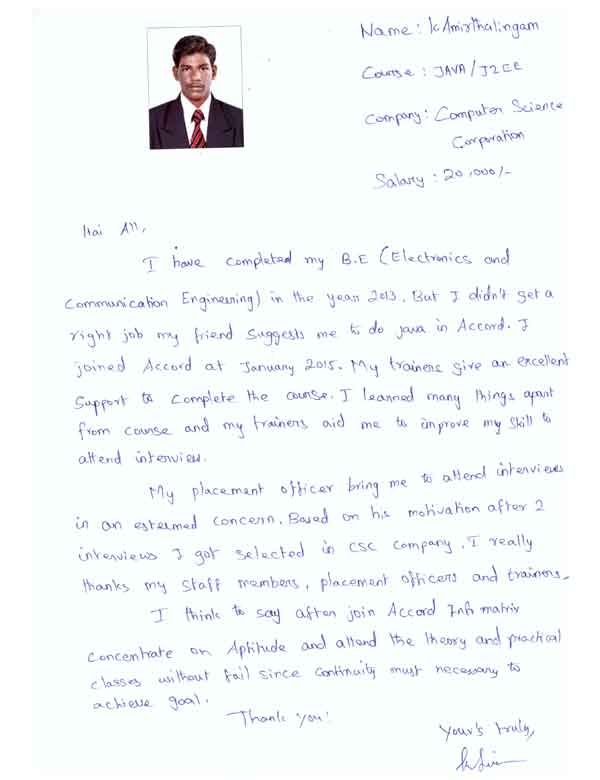 Name : K Amirthalingam
Course : JAVA/J2EE
Company : Computer Science
Corporation
Salary : 20,000/-
Hai All,
I have completed my B.E (Electronics and
Communication Engineering) in the year 2013. But I didn't get a
right job my friend Suggests me to do java in Accord. I
joined Accord at January 2015. My trainers give an excellent
Support to Complete the course. I learned many things apart
from course and my trainers aid me to improve my skill to
attend interview.
My placement officer bring me to attend interviews
in an estermed concern. Based on his motivation after 2
interviews I got selected in CSC company. I really
thanks my staff members, placement officers and trainers.
I think to say after join Accord Infomatrix
concentrate on Aptitude and attend the theory and practical
classes without fail since continuity must necessary to
achieve goal.
Thank you!
Your's truly,